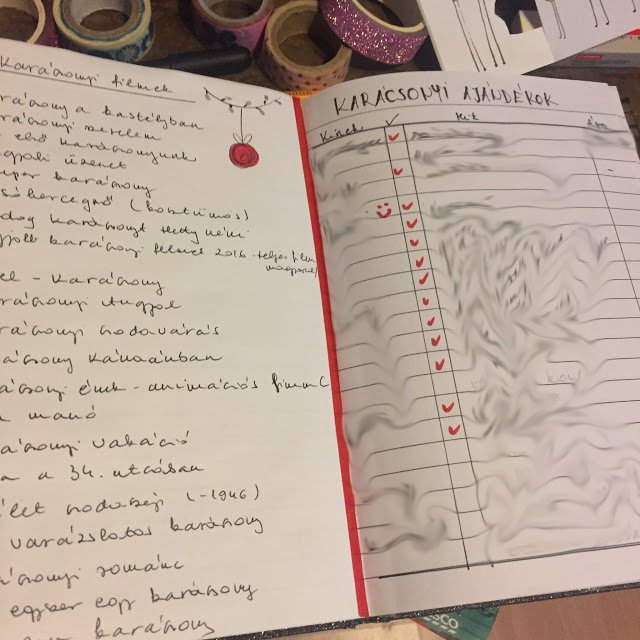 Karácsonyi filmek
rácsony a kastélyban
rácsonyi szerelem
első karácsonyunk
gyali üzenet
uper karácsony
só hercegnő (kosztümös)
dog karácsonyt
jobb karácsonyi filmek 2016 - teljes film
magyarul
el - Karácsony
rácsonyi Angyal
rácsonyi csodavárás
rácsony Kánaánban
rácsonyi ének - animációs
manó
rácsonyi vakáció
a a 34. utcában
élet csodaszép (-1946)
varázslatos karácsony
rácsonyi románc
egyszer egy karácsony
karácsony
KARÁCSONYI AJÁNDÉKOK
Kinek ✓ Mit